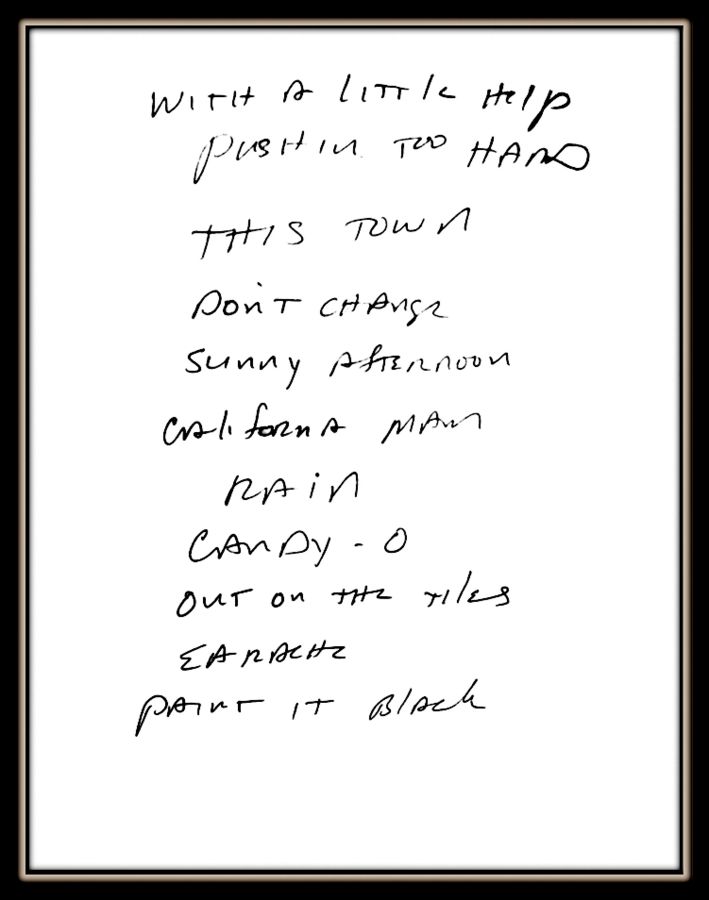 WITH A LITTLE HELP
PUSHIN TOO HARD
THIS TOWN
DON'T CHANGE
SUNNY AFTERNOON
CALIFORNIA MAN
RAIN
CANDY-O
OUT ON THE TILES
EARACHE
PAINT IT BLACK